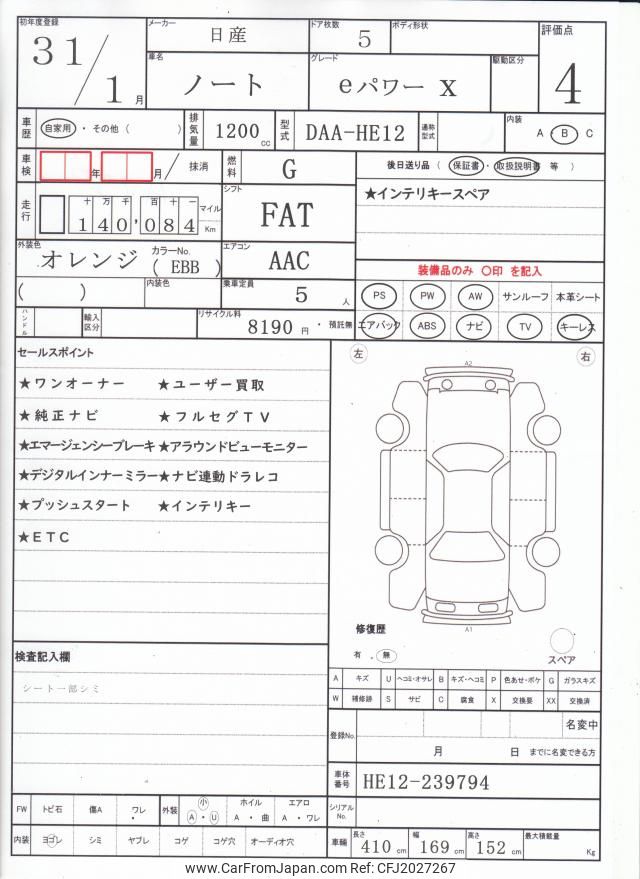 初年度登録 31/1月
メーカー 日産
ドア枚数 5
ボディ形状
評価点 4
車名 ノート
グレード eパワー X
駆動区分
車歴 自家用 ・ その他 ( )
排気量 1200 cc
型式 DAA-HE12
通称型式
内装 A ・ B C
車検 年 月 / 抹消
燃料 G
後日送り品 ( 保証書 ・ 取扱説明書 等 )
走行 十万千百十一 140,084 マイル Km
シフト FAT
★インテリキースペア
外装色 オレンジ カラーNo. ( EBB )
エアコン AAC
装備品のみ 〇印 を記入
( )
内装色
乗車定員 5 人
PS PW AW サンルーフ 本革シート
ハンドル
輸入区分
リサイクル料 8190 円 ・ 預託無
エアバック ABS ナビ TV キーレス
セールスポイント
左 右
A2
★ワンオーナー ★ユーザー買取
★純正ナビ ★フルセグTV
★エマージェンシーブレーキ★アラウンドビューモニター
★デジタルインナーミラー★ナビ連動ドラレコ
★プッシュスタート ★インテリキー
★ETC
A1
修復歴
有 . 無
スペア
検査記入欄
シート一部シミ
A キズ U ヘコミ・オサレ B キズ・ヘコミ P 色あせ・ボケ G ガラスキズ
W 補修跡 S サビ C 腐食 X 交換要 XX 交換済
登録No. 名変中
月 日 までに名変できる方
車体番号 HE12-239794
シリアルNo.
FW トビ石 傷A ワレ 外装 小 A ・ U ホイル A ・ 曲 エアロ A ・ ワレ
内装 ヨゴレ シミ ヤブレ コゲ コゲ穴 オーディオ穴
車輛 長さ 410 cm 幅 169 cm 高さ 152 cm 最大積載量 Kg
www.CarFromJapan.com Ref: CFJ2027267